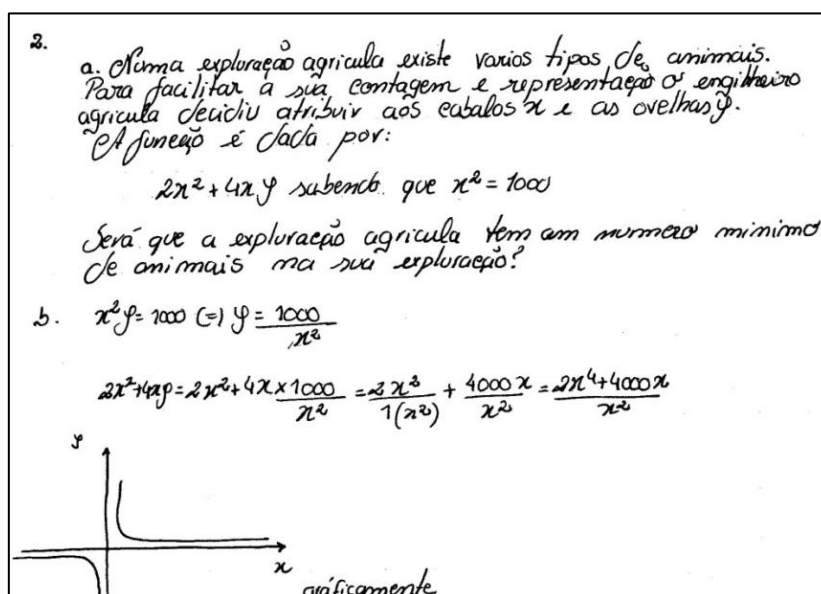 2.
a. Numa exploração agricula existe varios tipos de animais.
Para facilitar a sua contagem e representação o engilheiro
agricula decidiu atribuir aos cabalos x e as ovelhas y.
A função é dada por:
2x² + 4xy sabendo que x² = 1000
Será que a exploração agricula tem um numero minimo
de animais na sua exploração?
b. x²y = 1000 (=) y = 1000/x²
2x²+4xy = 2x² + 4x × 1000/x² = 2x²/1(x²) + 4000x/x² = 2x⁴+4000x/x²
y
x
gráficamente